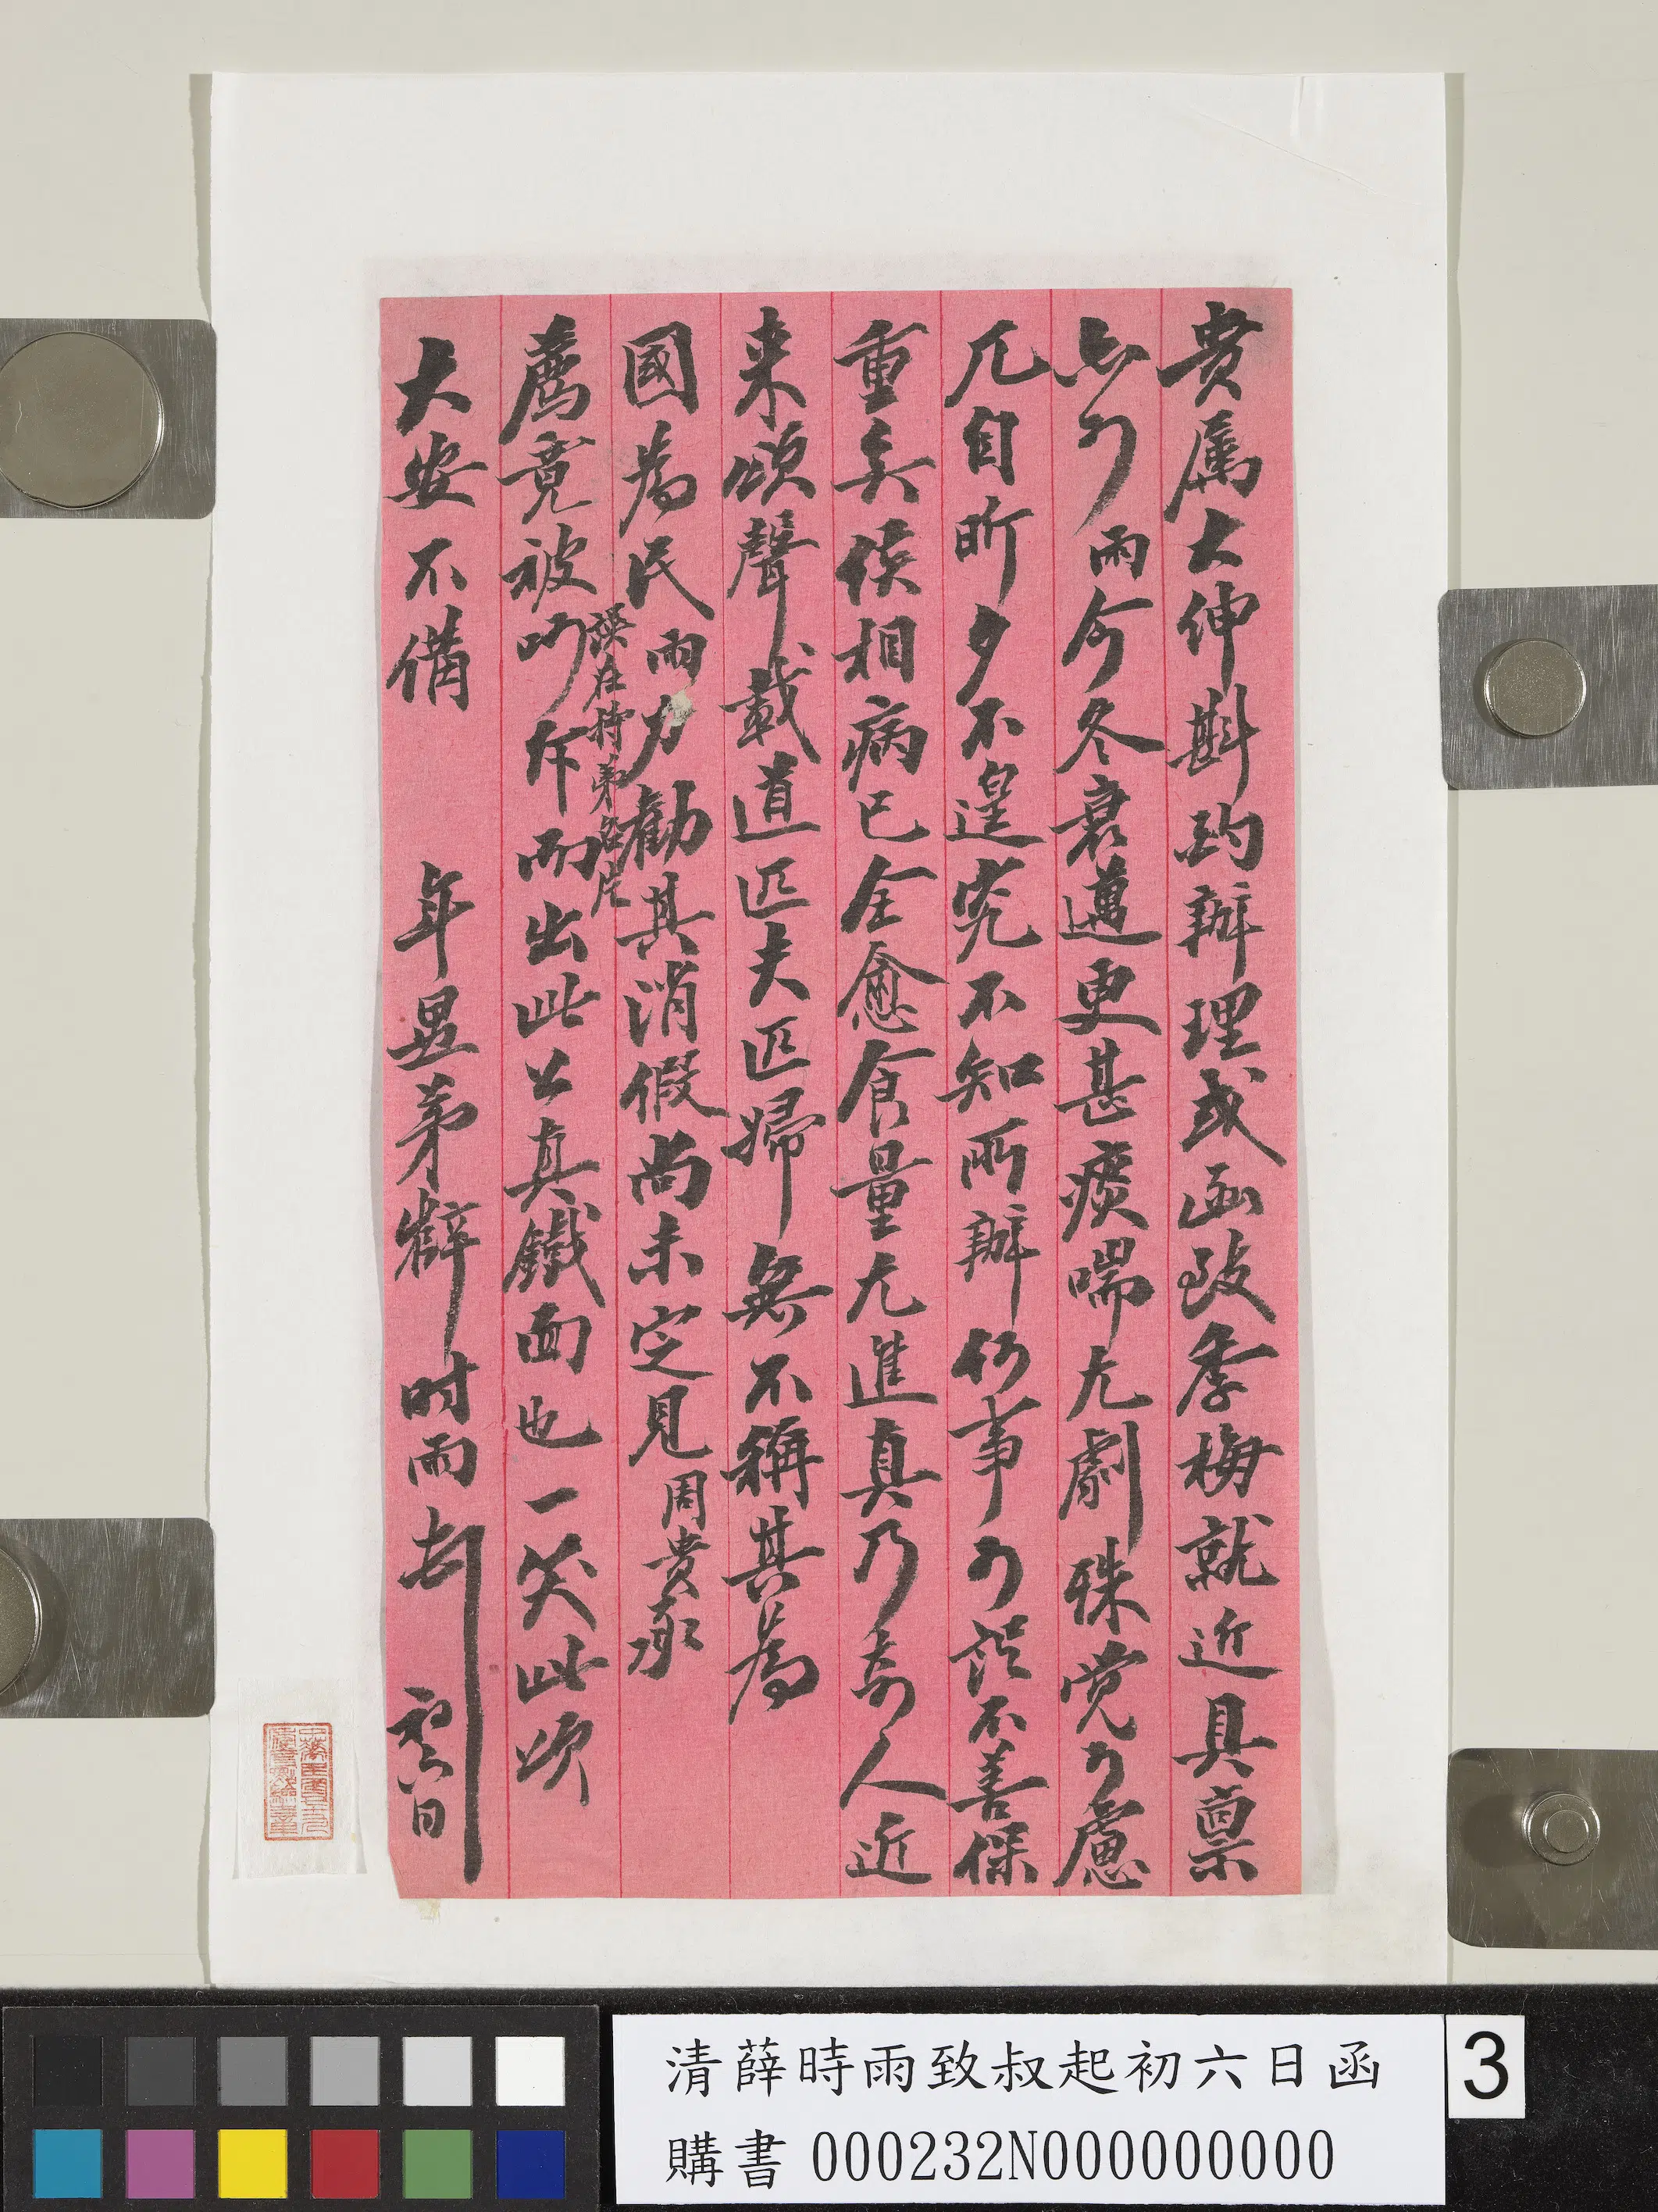 貴属大紳斟酌辦理或函致季梅就近具禀
亦可雨今冬衰邁更甚痰喘尤劇殊覺可慮
兀自昕夕不遑究不知所辦何事可謂不善保
重矣侯相病已全愈食量尤進真乃奇人近
来頌聲載道匹夫匹婦無不稱其為
國為民雨力勸其消假尚未定見周貴承
薦竟被叱斥而出此公真鐵面也一笑此頌
誤在持弟名片
大安不備 年愚弟薛时雨頓 初六日
清薛時雨致叔起初六日函
購書 000232N000000000
3